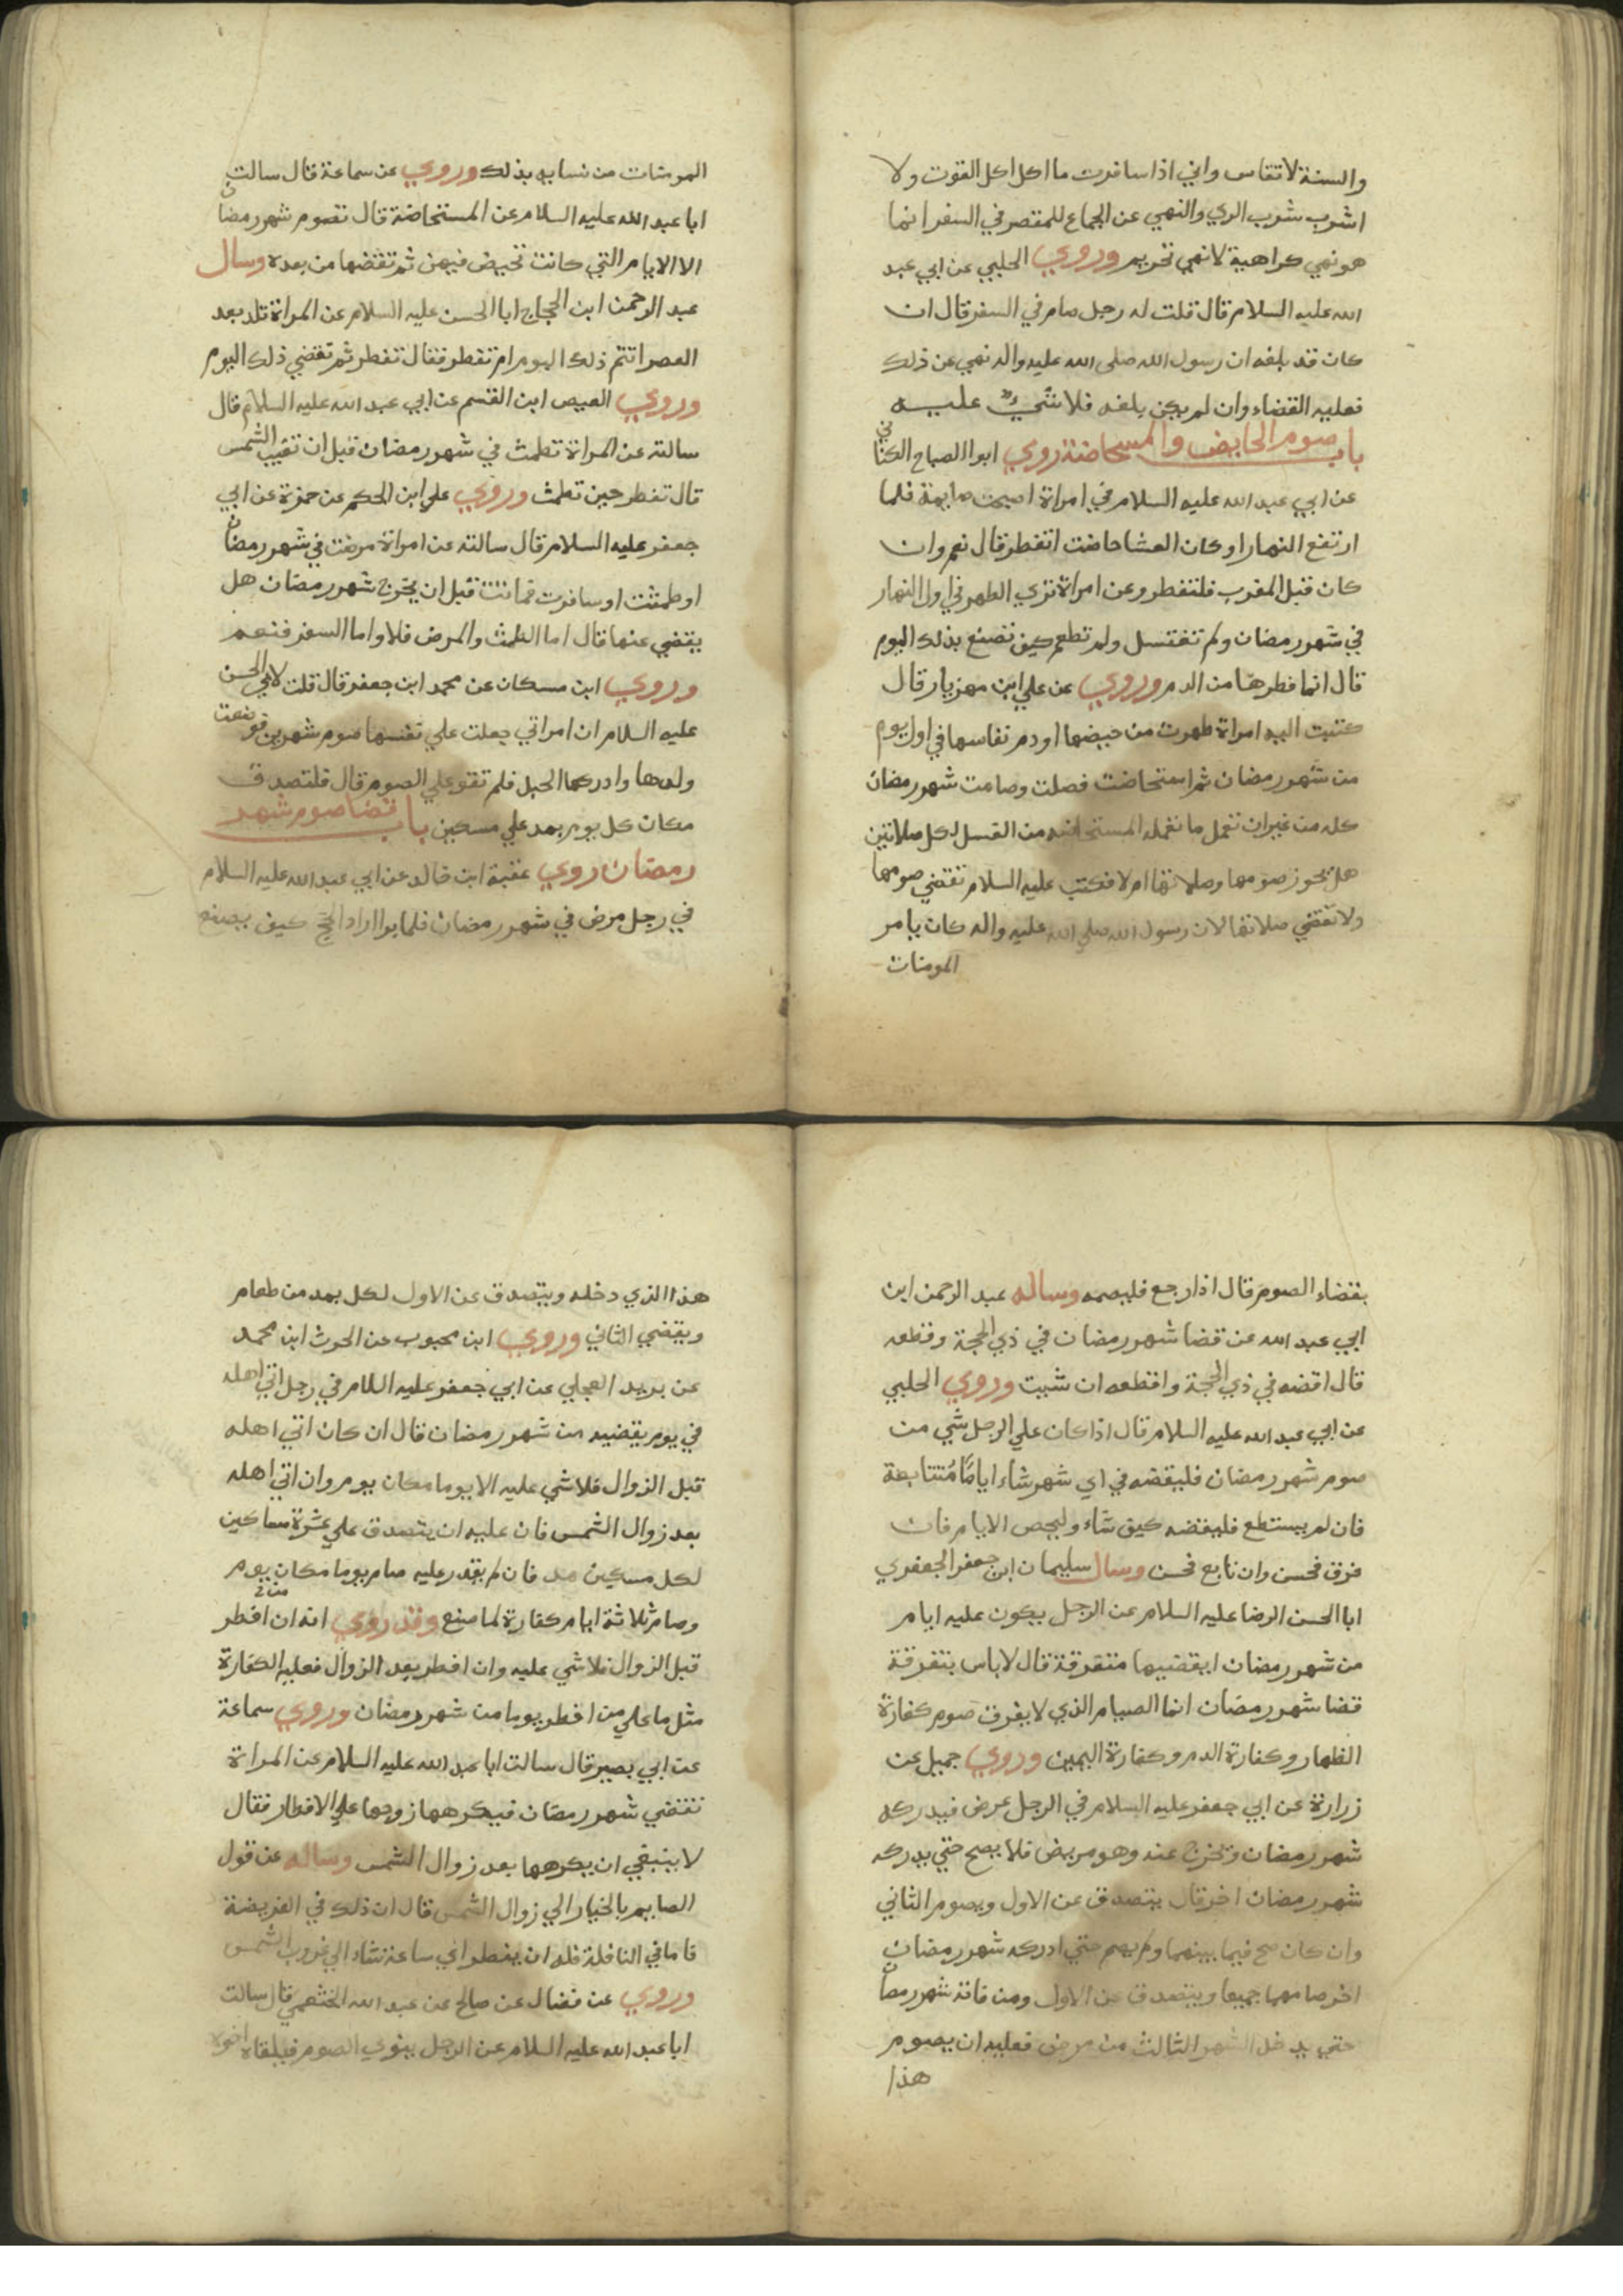 والسنة لا تقاس واني اذا سافرت ما اكل اكل القوت ولا
اشرب شرب الري والنهي عن الجماع للمقصر في السفر انما
هو نهي كراهية لا نهي تحريم وروي الحلبي عن ابي عبد
الله عليه السلام قال قلت له رجل صام في السفر قال ان
كان قد بلغه ان رسول الله صلى الله عليه واله نهي عن ذلك
فعليه القضاء وان لم يكن بلغه فلا شيء عليه
باب صوم الحايض والمسحاضة روي ابوا الصباح الكناني
عن ابي عبد الله عليه السلام في امراة اصبحت صايمة فلما
ارتفع النهار او كان العشا حاضت اتفطر قال نعم وان
كان قبل المغرب فلتفطر وعن امراة تري الطهر في اول النهار
في شهر رمضان ولم تغتسل ولم تطعم كيف تصنع بذلك اليوم
قال انما فطرها من الدم وروي عن علي ابن مهزيار قال
كتبت اليه امراة طهرت من حيضها او دم نفاسها في اول يوم
من شهر رمضان ثم استحاضت فصلت وصامت شهر رمضان
كله من غير ان تعمل ما تعمله المستحاضه من الغسل لكل صلاتين
هل يجوز صومها وصلاتها ام لا فكتب عليه السلام تقضي صومها
ولا تقضي صلاتها لان رسول الله صلي الله عليه واله كان يامر
المومنات
المومنات من نسايه بذلك وروي عن سماعة قال سالت
ابا عبد الله عليه السلام عن المستحاضة قال تصوم شهر رمضان
الا الايام التي كانت تحيض فيهن ثم تقضها من بعده وسال
عبد الرحمن ابن الحجاج ابا الحسن عليه السلام عن المراة تلد بعد
العصر اتتم ذلك اليوم ام تفطر فقال تفطر ثم تقضي ذلك اليوم
وروي العيص ابن القسم عن ابي عبد الله عليه السلام قال
سالته عن المراة تطمث في شهر رمضان قبل ان تغيب الشمس
قال تفطر حين تطمث وروي علي ابن الحكم عن حمزة عن ابي
جعفر عليه السلام قال سالته عن امراة مرضت في شهر رمضان
او طمثت او سافرت فماتت قبل ان يخرج شهر رمضان هل
يقضي عنها قال اما الطمث والمرض فلا واما السفر فنعم
وروي ابن مسكان عن محمد ابن جعفر قال قلت لابي الحسن
عليه السلام ان امراتي جعلت علي نفسها صوم شهرين فوضعت
ولدها وادركها الحبل فلم تقو علي الصوم قال فلتصدق
مكان كل يوم بمد علي مسكين باب قضا صوم شهر
رمضان روي عقبة ابن خالد عن ابي عبد الله عليه السلام
في رجل مرض في شهر رمضان فلما برا اراد الحج كيف يصنع
بقضاء الصوم قال اذا رجع فليصمه وساله عبد الرحمن ابن
ابي عبد الله عن قضا شهر رمضان في ذي الحجة وقطعه
قال اقضه في ذي الحجة واقطعه ان شيت وروي الحلبي
عن ابي عبد الله عليه السلام قال اذا كان علي الرجل شي من
صوم شهر رمضان فليقضه في اي شهر شاء اياما متتابعة
فان لم يستطع فليقضه كيف شاء وليحص الايام فان
فرق فحسن وان تابع فحسن وسال سليمان ابن جعفر الجعفري
ابا الحسن الرضا عليه السلام عن الرجل يكون عليه ايام
من شهر رمضان ايقضيها متفرقة قال لا باس بتفرقة
قضا شهر رمضان انما الصيام الذي لا يفرق صوم كفارة
الظهار وكفارة الدم وكفارة اليمين وروي جميل عن
زرارة عن ابي جعفر عليه السلام في الرجل يمرض فيدركه
شهر رمضان ويخرج عنه وهو مريض فلا يصح حتي يدركه
شهر رمضان اخر قال يتصدق عن الاول ويصوم الثاني
وان كان صح فيما بينهما ولم يصم حتي ادركه شهر رمضان
اخر صامهما جميعا ويتصدق عن الاول ومن فاته شهر رمضان
حتي يدخل الشهر الثالث من مرض فعليه ان يصوم
هذا
هذا الذي دخله ويتصدق عن الاول لكل بمد من طعام
ويقضي الثاني وروي ابن محبوب عن الحرث ابن محمد
عن بريد العجلي عن ابي جعفر عليه اللام في رجل اتي اهله
في يوم يقضيه من شهر رمضان قال ان كان اتي اهله
قبل الزوال فلا شي عليه الا يوما مكان يوم وان اتي اهله
بعد زوال الشمس فان عليه ان يتصدق علي عشرة مساكين
لكل مسكين مد فان لم يقدر عليه صام يوما مكان يوم
وصام ثلاثة ايام كفارة لما صنع وقد روي انه ان افطر
قبل الزوال فلا شي عليه وان افطر بعد الزوال فعليه الكفارة
مثل ما علي من افطر يوما من شهر رمضان وروي سماعة
عن ابي بصير قال سالت ابا عبد الله عليه السلام عن المراة
تقضي شهر رمضان فيكرهها زوجها علي الافطار فقال
لا ينبغي ان يكرهها بعد زوال الشمس وساله عن قول
الصايم بالخيار الي زوال الشمس قال ان ذلك في الفريضة
فاما في النافلة فله ان يفطر اي ساعة شاء الي غروب الشمس
وروي عن فضال عن صالح عن عبد الله الخثعمي قال سالت
ابا عبد الله عليه السلام عن الرجل ينوي الصوم فيلقاه اخوه